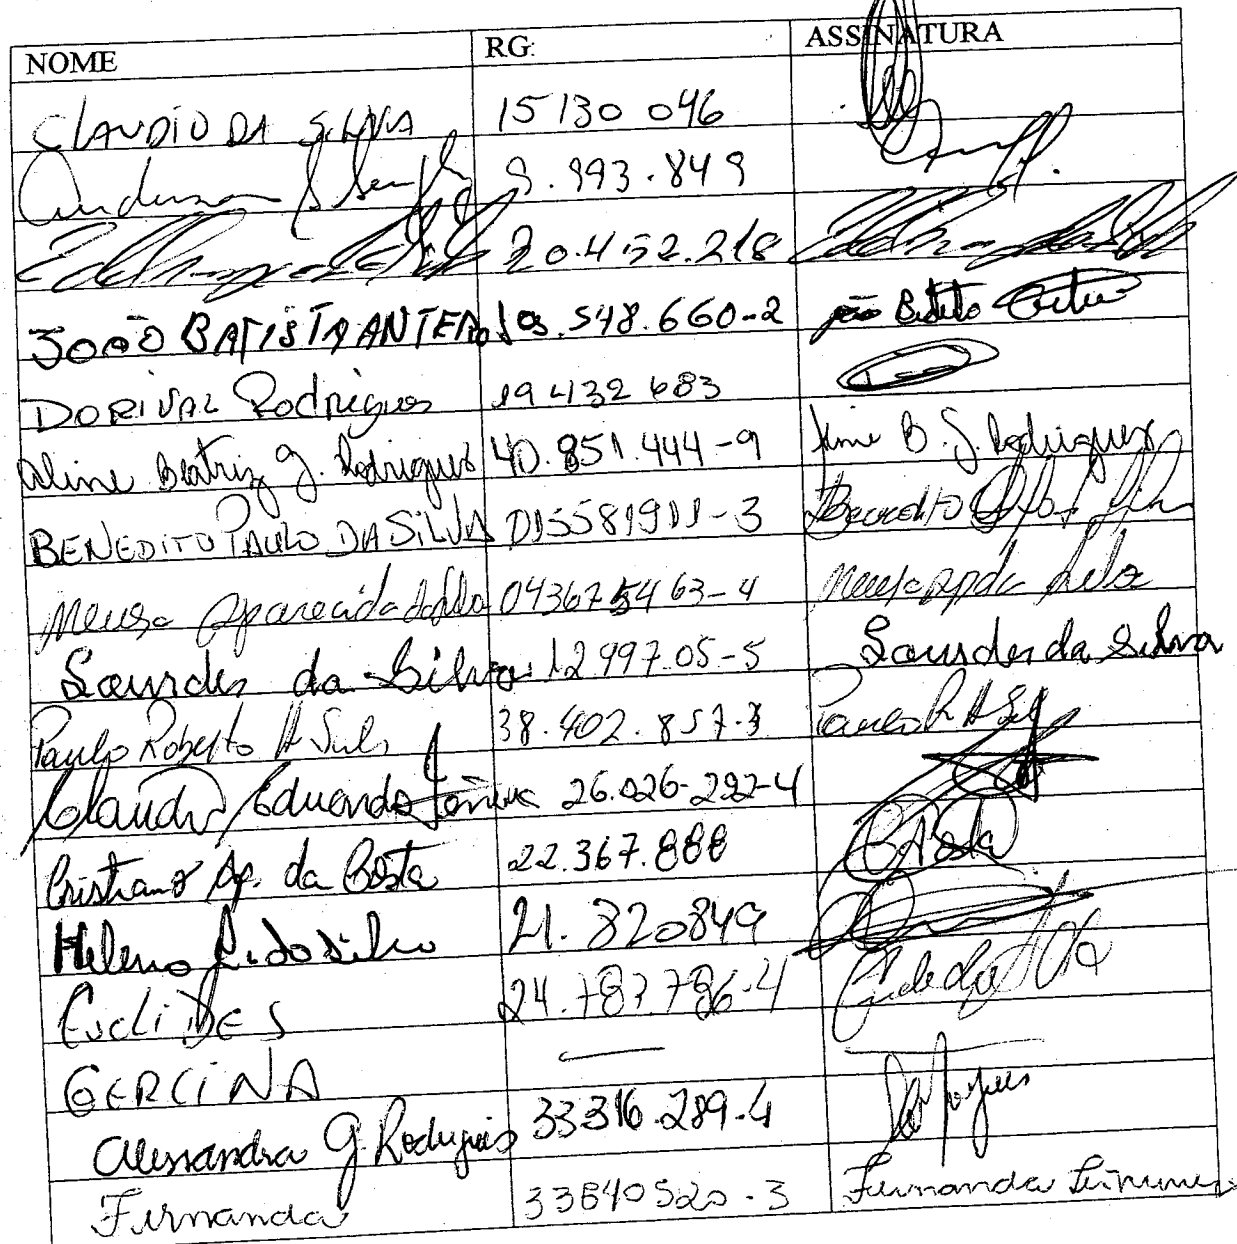 NOME RG: ASSINATURA
CLAUDIO DA SILVA 15130 046
Anderson 9.993.849
20.452.218
JOÃO BATISTA ANTERO 19.548.660-2 joão Batista
DORIVAL Rodrigues 19 432 683
Aline Beatriz G. Rodrigues 40.851.444-9 Aline B. G. Rodrigues
BENEDITO PAULO DA SILVA 015581911-3 Benedito
Neusa Aparecida 043675463-4 Neusa Apda
Lourdes da Silva 12997.05-5 Lourdes da Silva
Paulo Roberto A Silv 38.402.857-3 Paulo R A
Claudio Eduardo 26.026-292-4
Cristiano Ap. da Costa 22.367.888 Costa
Heleno 21.320849
EucliDES 24.787.786-4
GERCINA —
Alessandra G. Rodrigues 33316.289-4
Fernanda 33640520-3 Fernanda